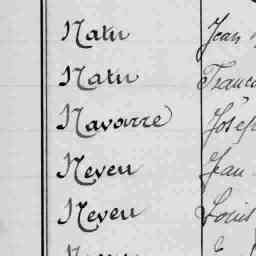 Natu Jean
Natu Franco
Navarre Josep
Neveu Jean
Neveu Louis